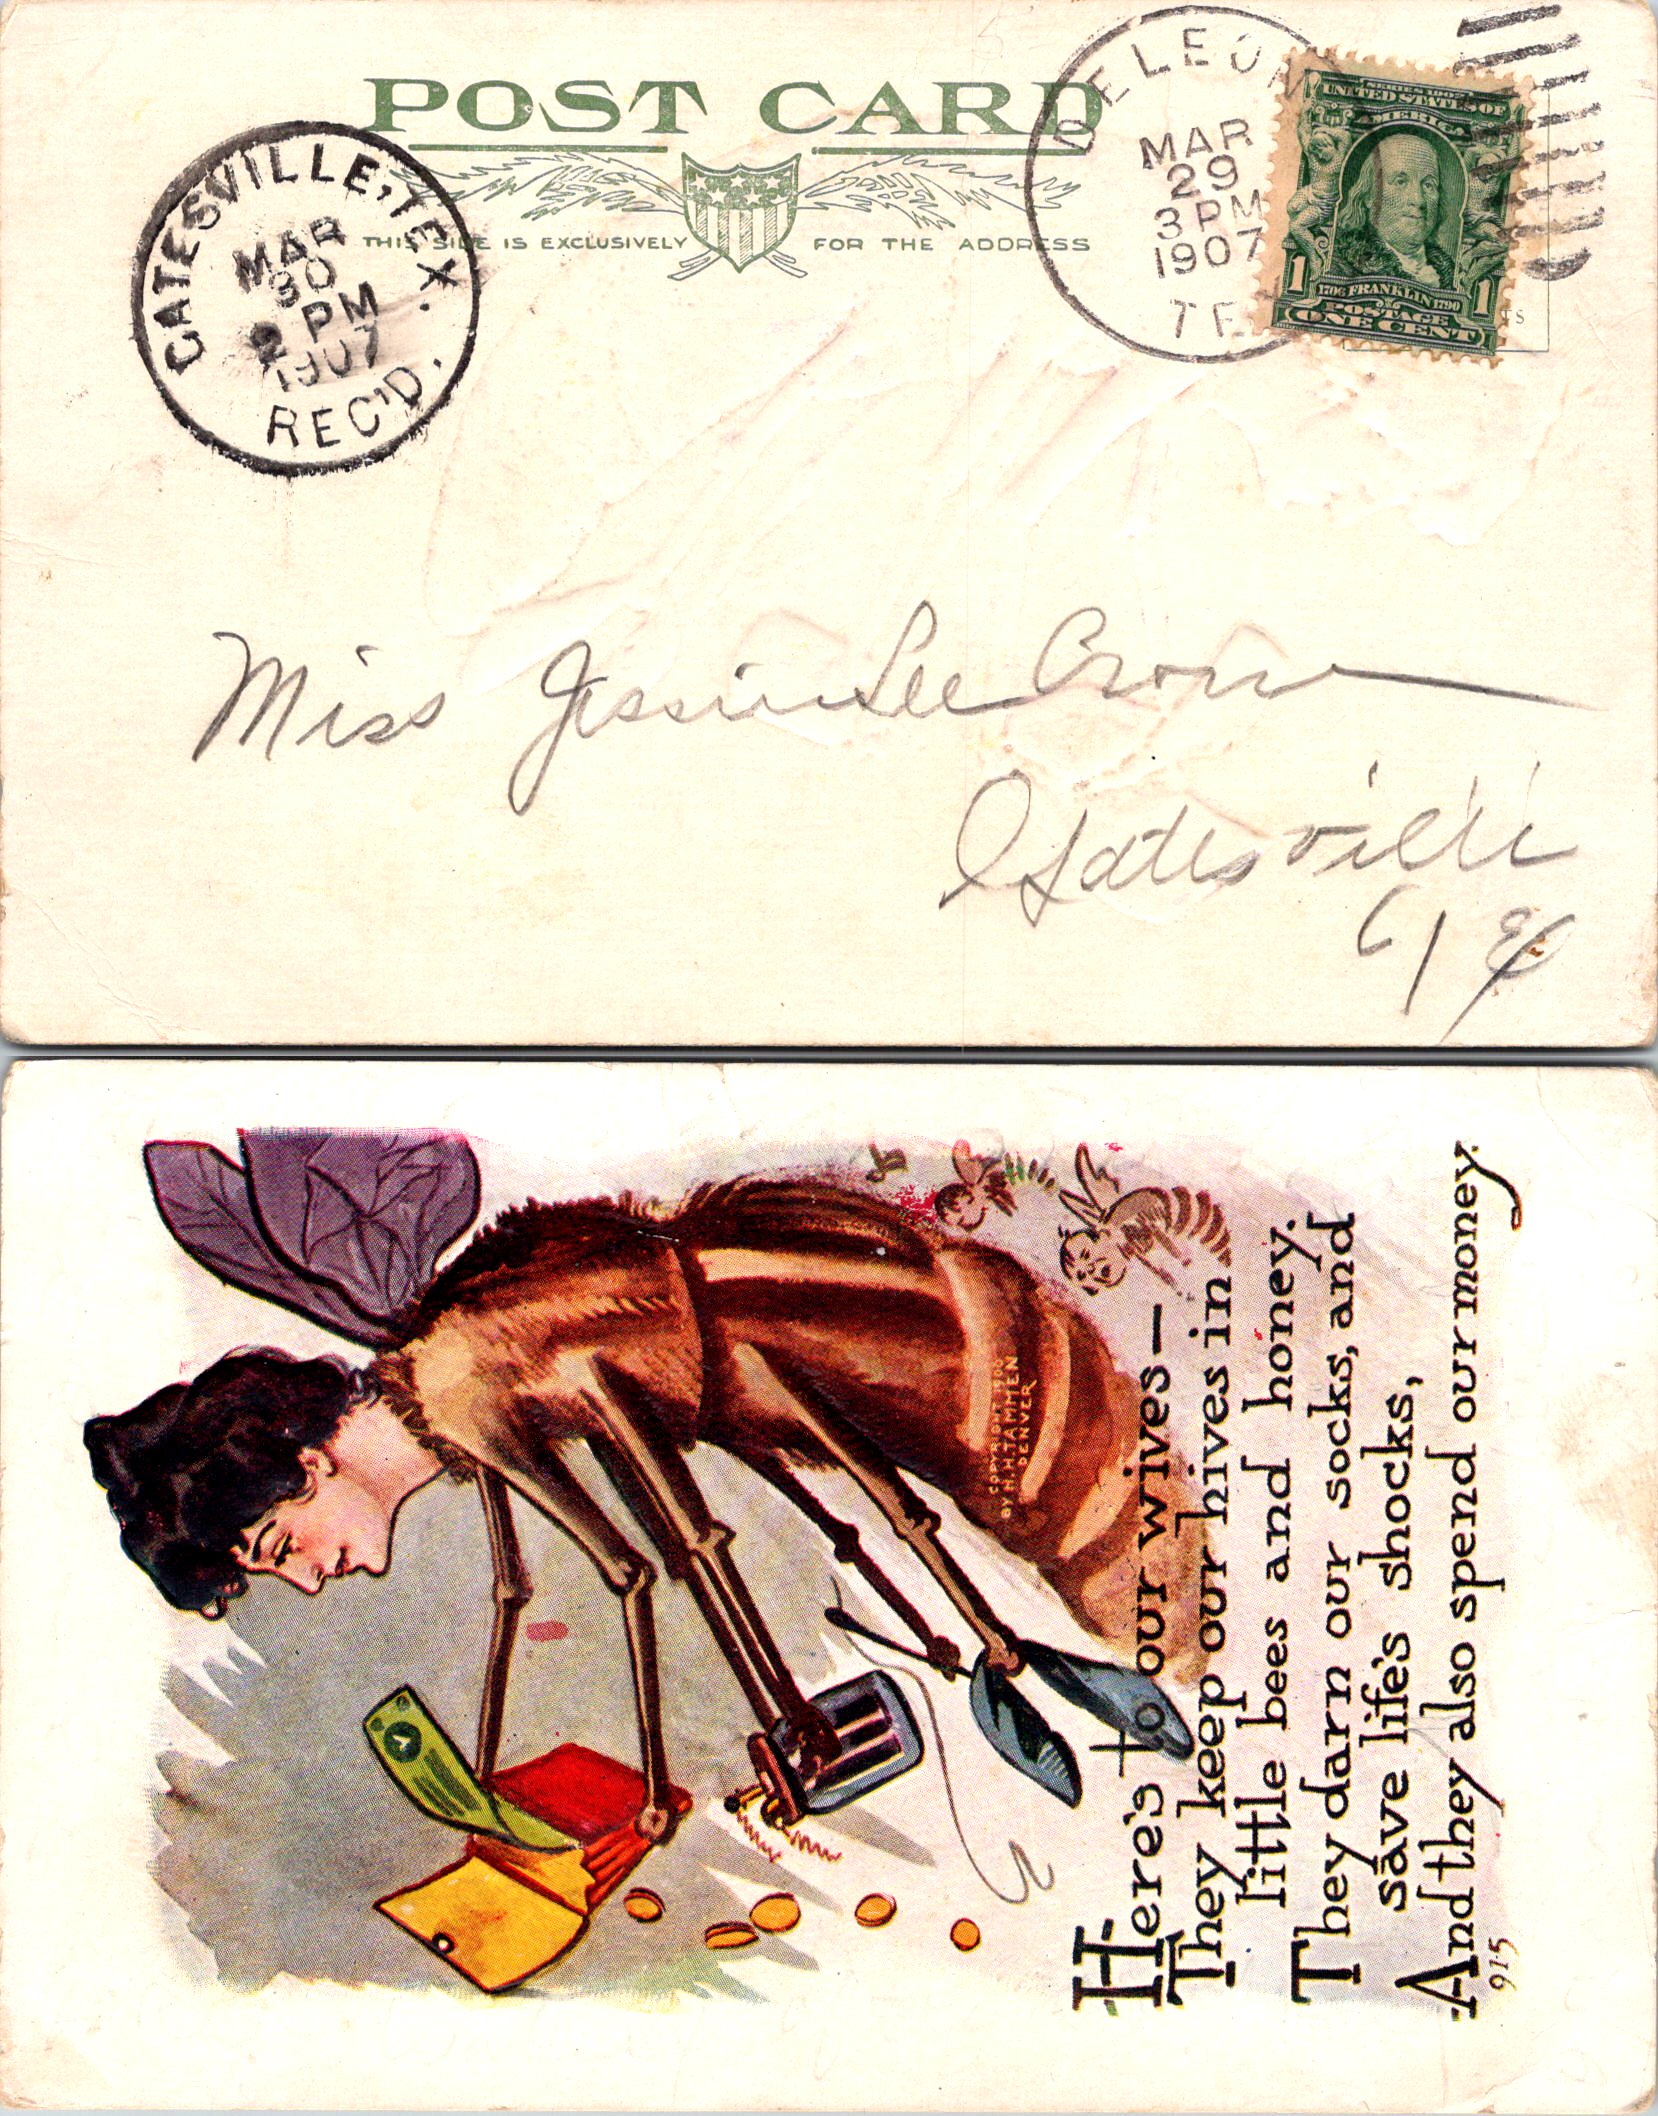 POST CARD
THIS SIDE IS EXCLUSIVELY FOR THE ADDRESS
GATESVILLE, TEX.
MAR
30
2 PM
1907
REC'D.
DE LEON
MAR
29
3 PM
1907
TEX
SERIES 1902
UNITED STATES OF
AMERICA
1706 FRANKLIN 1790
1 1
POSTAGE
ONE CENT
TS
Miss Jessie Lee Crow
Gatesville
COPYRIGHT
BY H.H.TAMMEN
DENVER
Here's to our wives—
They keep our hives in
little bees and honey.
They darn our socks, and
save life's shocks,
And they also spend our money.
915